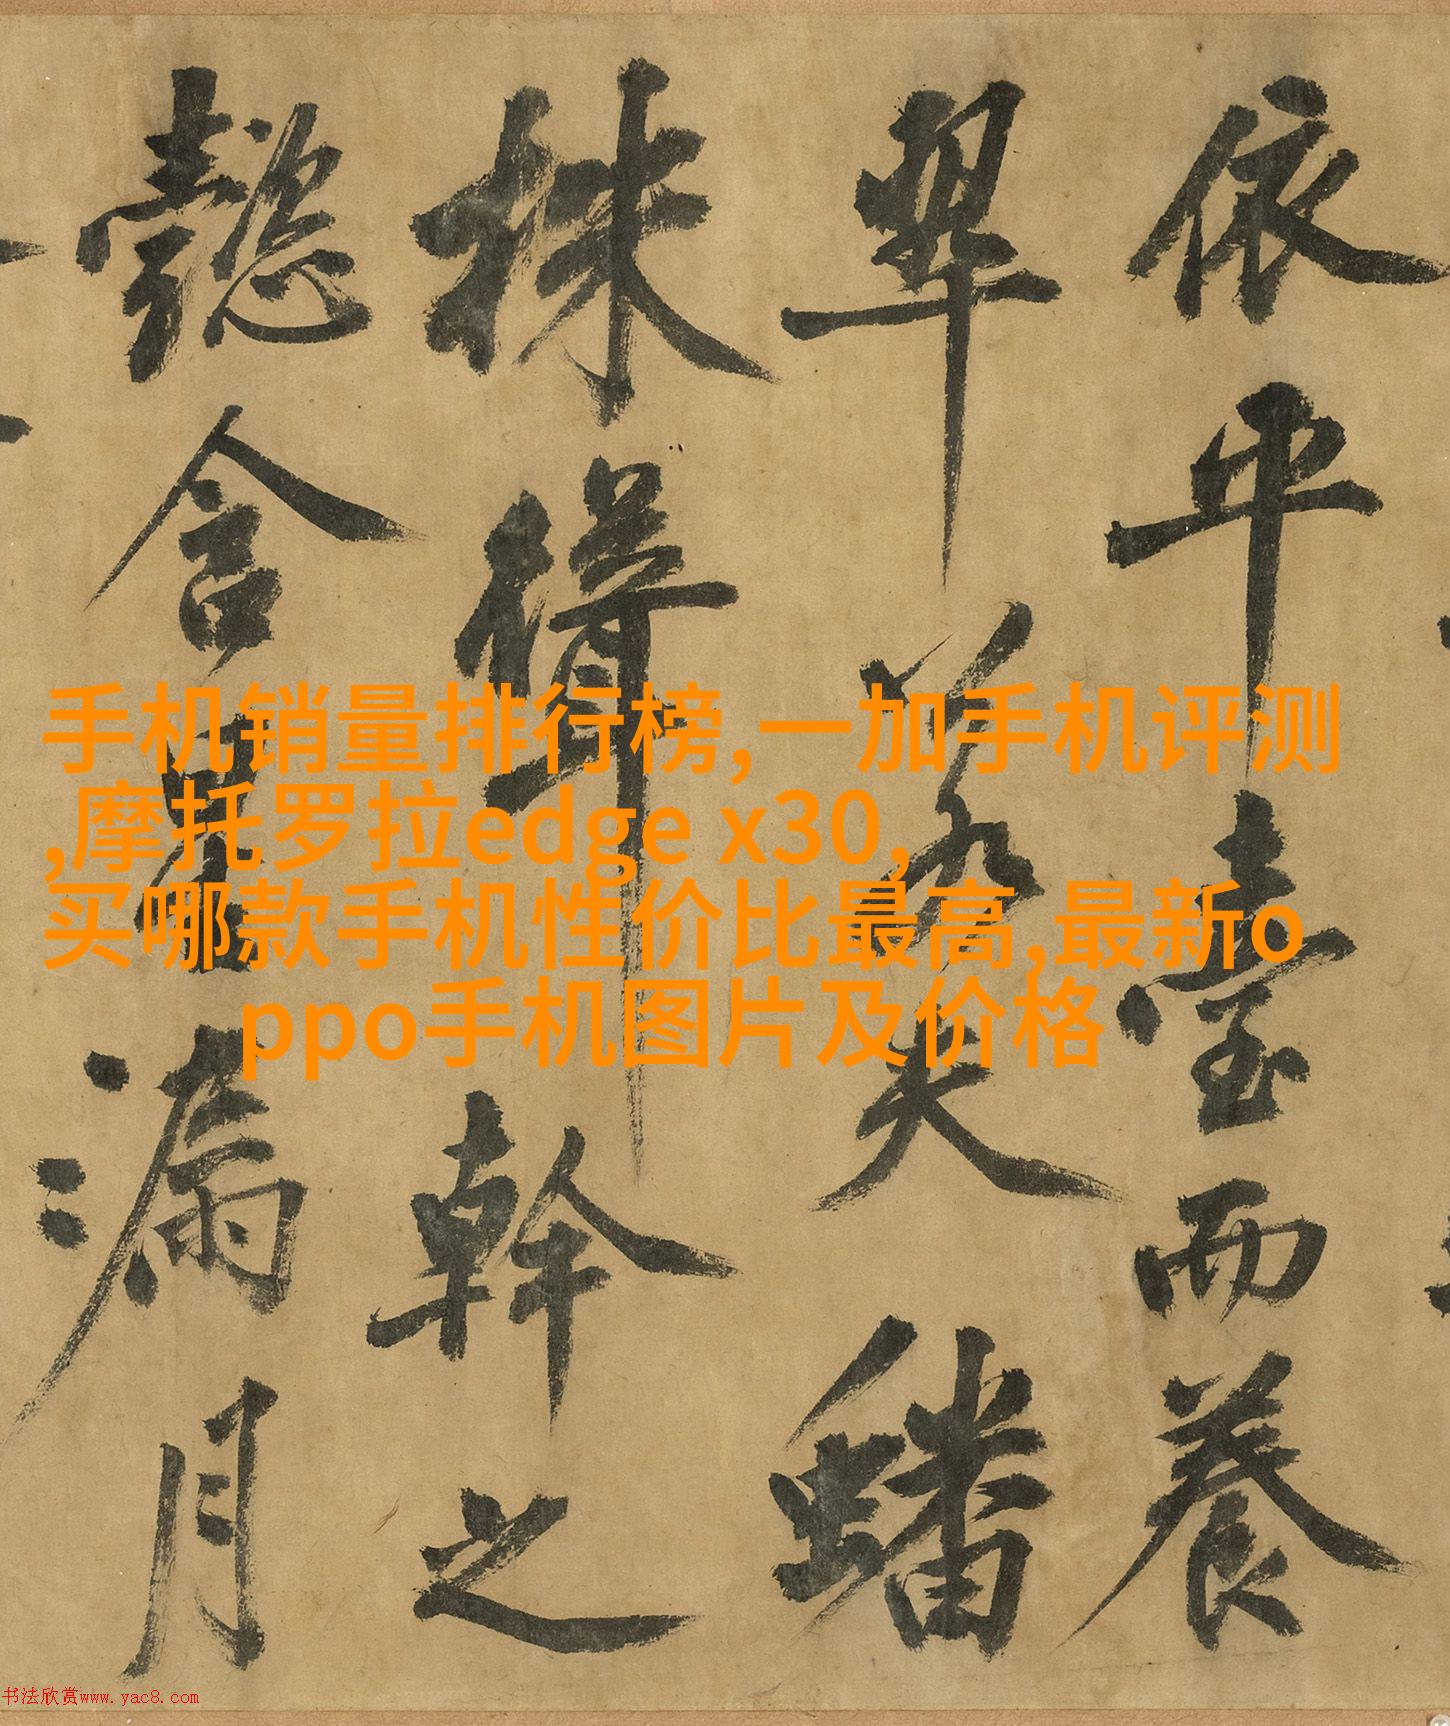 依平臺而養
翠若夫蟠
株聳幹之
懿含星漏月
手机销量排行榜,一加手机评测
,摩托罗拉edge x30,
买哪款手机性价比最高,最新o
ppo手机图片及价格
书法欣赏www.yac8.com